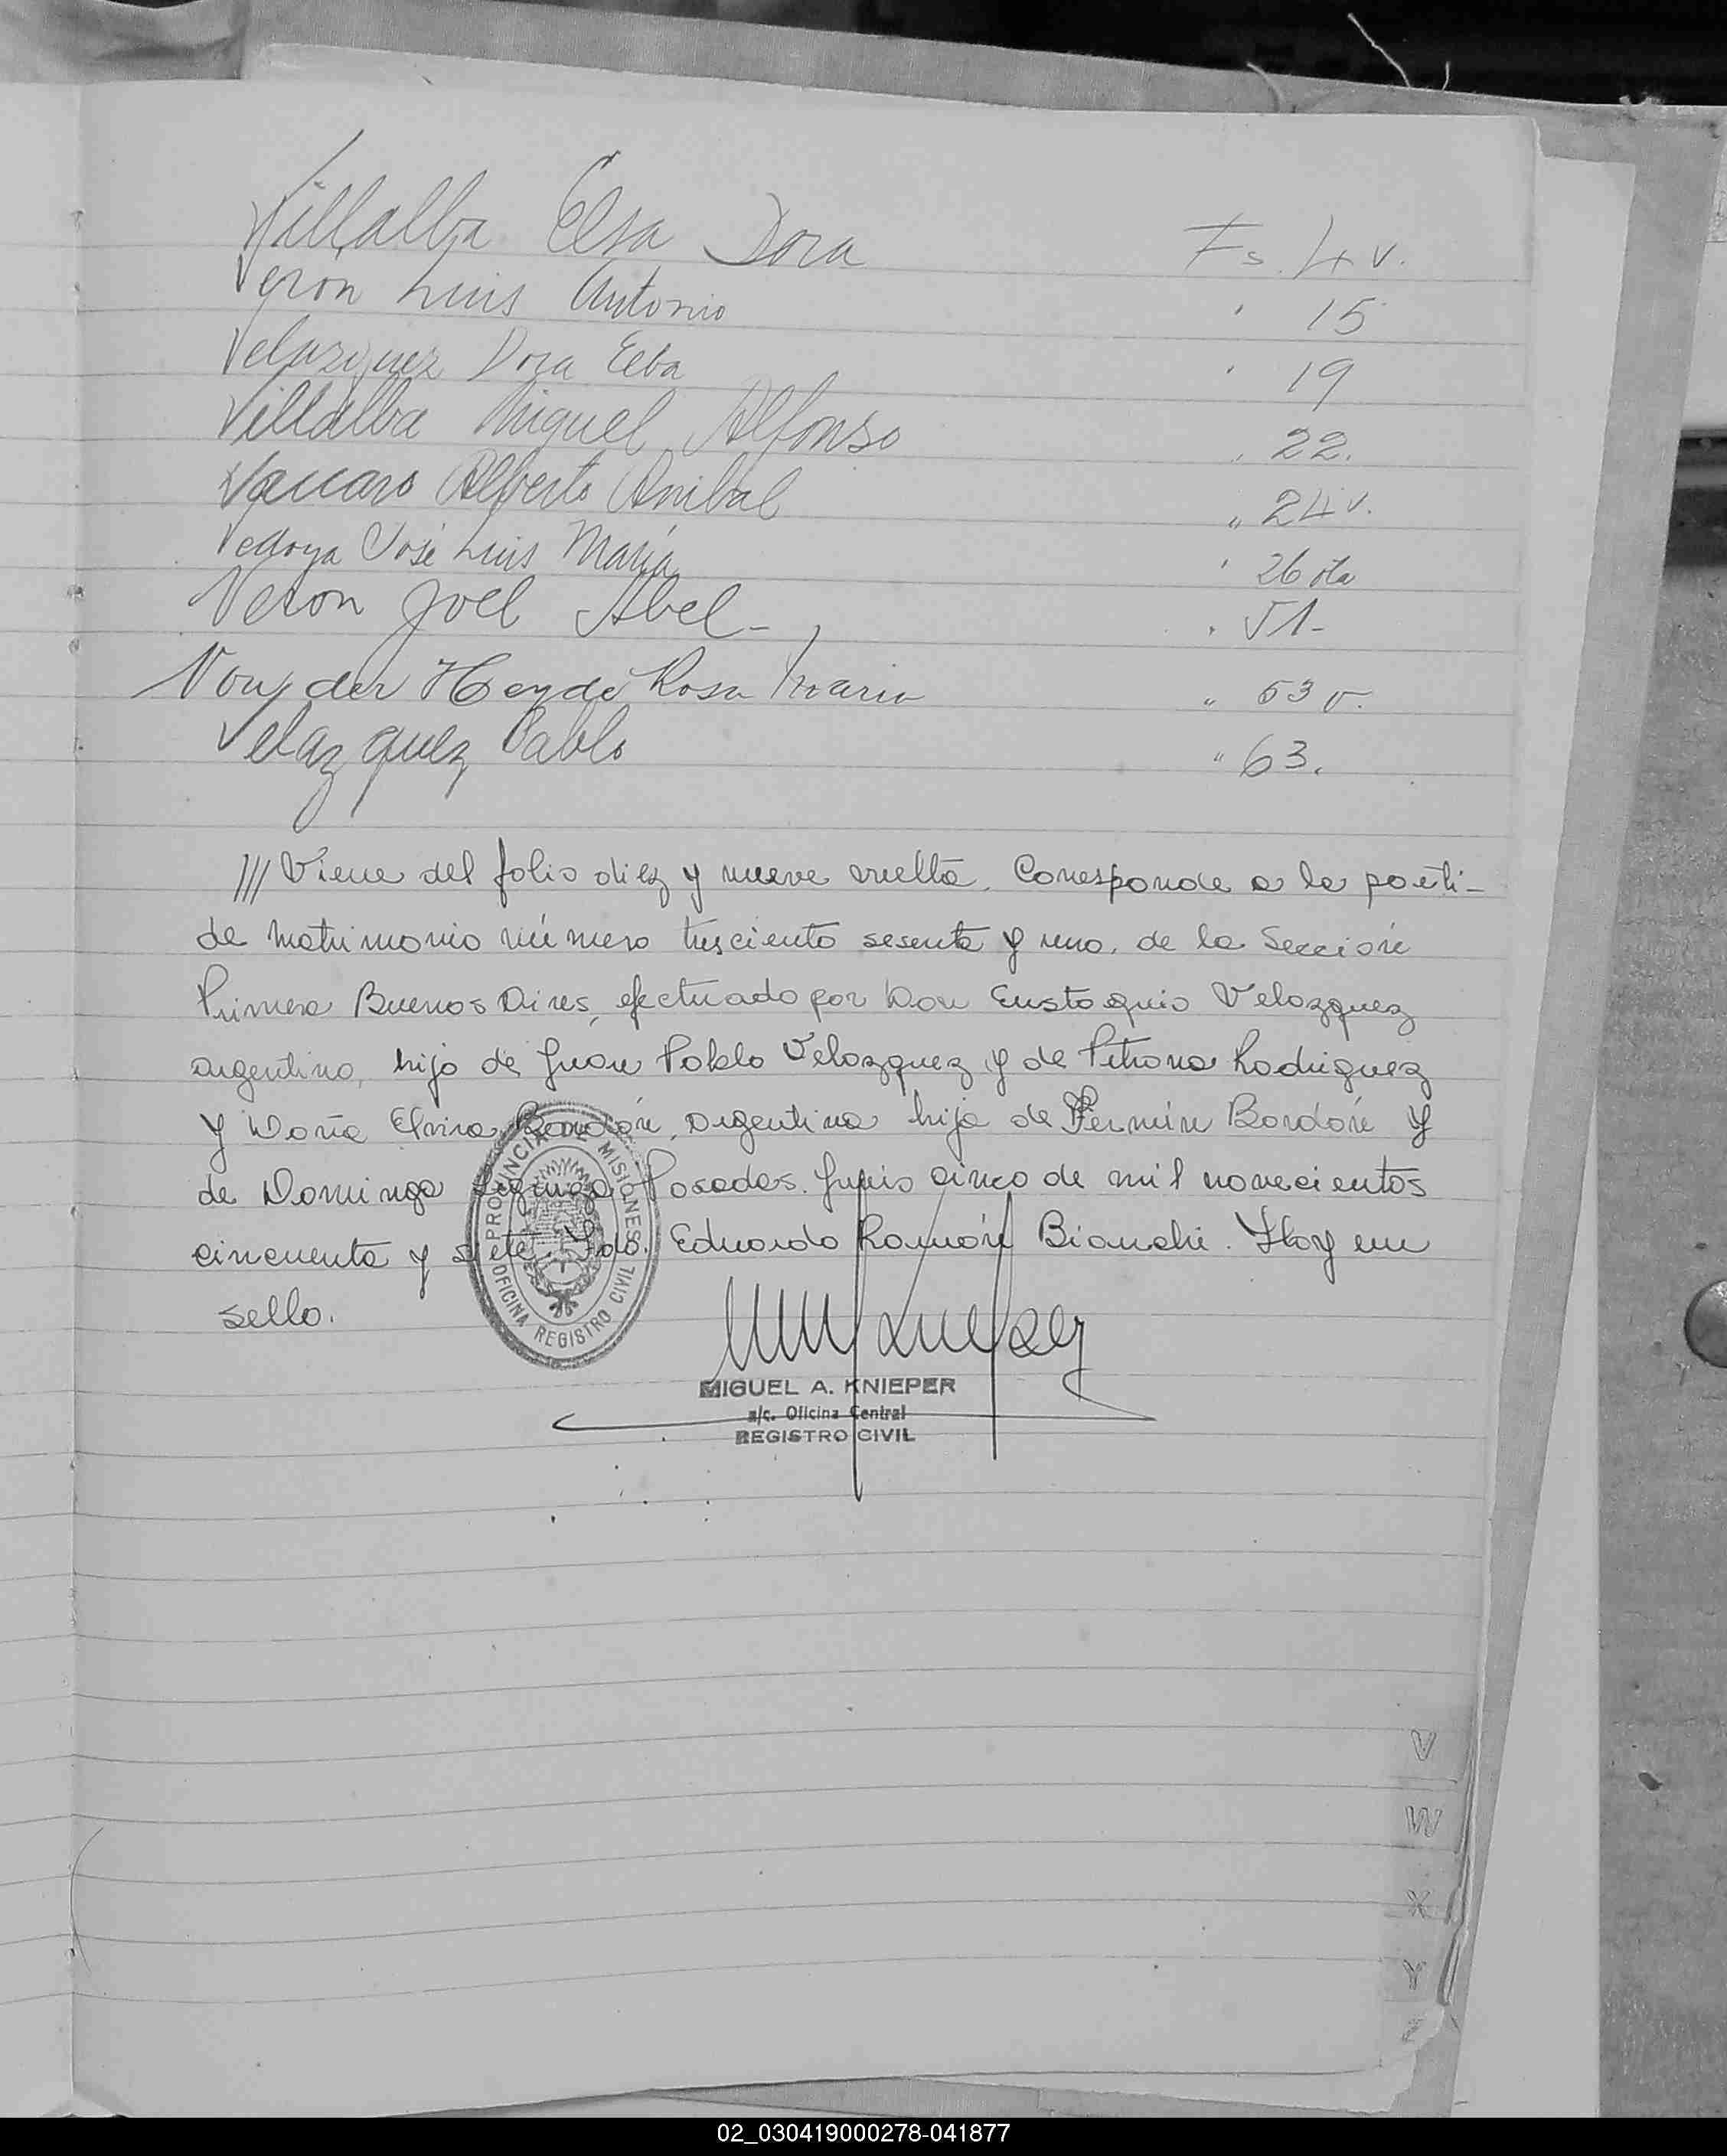 Villalba Elsa Dora Fs. 4 v.
Veron Luis Antonio " 15
Velazquez Dora Elba " 19
Villalba Miguel Alfonso " 22.
Vaccaro Alberto Anibal " 24 v.
Vedoya José Luis María " 26 vta
Veron Joel Abel - " 51-
Von der Heyde Rosa Maria " 53 v.
Velazquez Pablo " 63.
/// Viene del folio diez y nueve vuelta. Corresponde a la parti-
de matrimonio número tresciento sesenta y uno, de la Sección
Primera Buenos Aires, efectuado por Don Eustaquio Velazquez
argentino, hijo de Juan Pablo Velazquez y de Petrona Rodriguez
y Doña Elvira Bordón, argentina hija de Fermín Bordón y
de Dominga Posadas. Junio cinco de mil novecientos
cincuenta y siete. Fdo. Eduardo Ramón Bianchi. Hay un
sello.
PROVINCIA DE MISIONES
OFICINA REGISTRO CIVIL
MIGUEL A. KNIEPER
a/c. Oficina Central
REGISTRO CIVIL
V
W
X
Y
Z
02_030419000278-041877